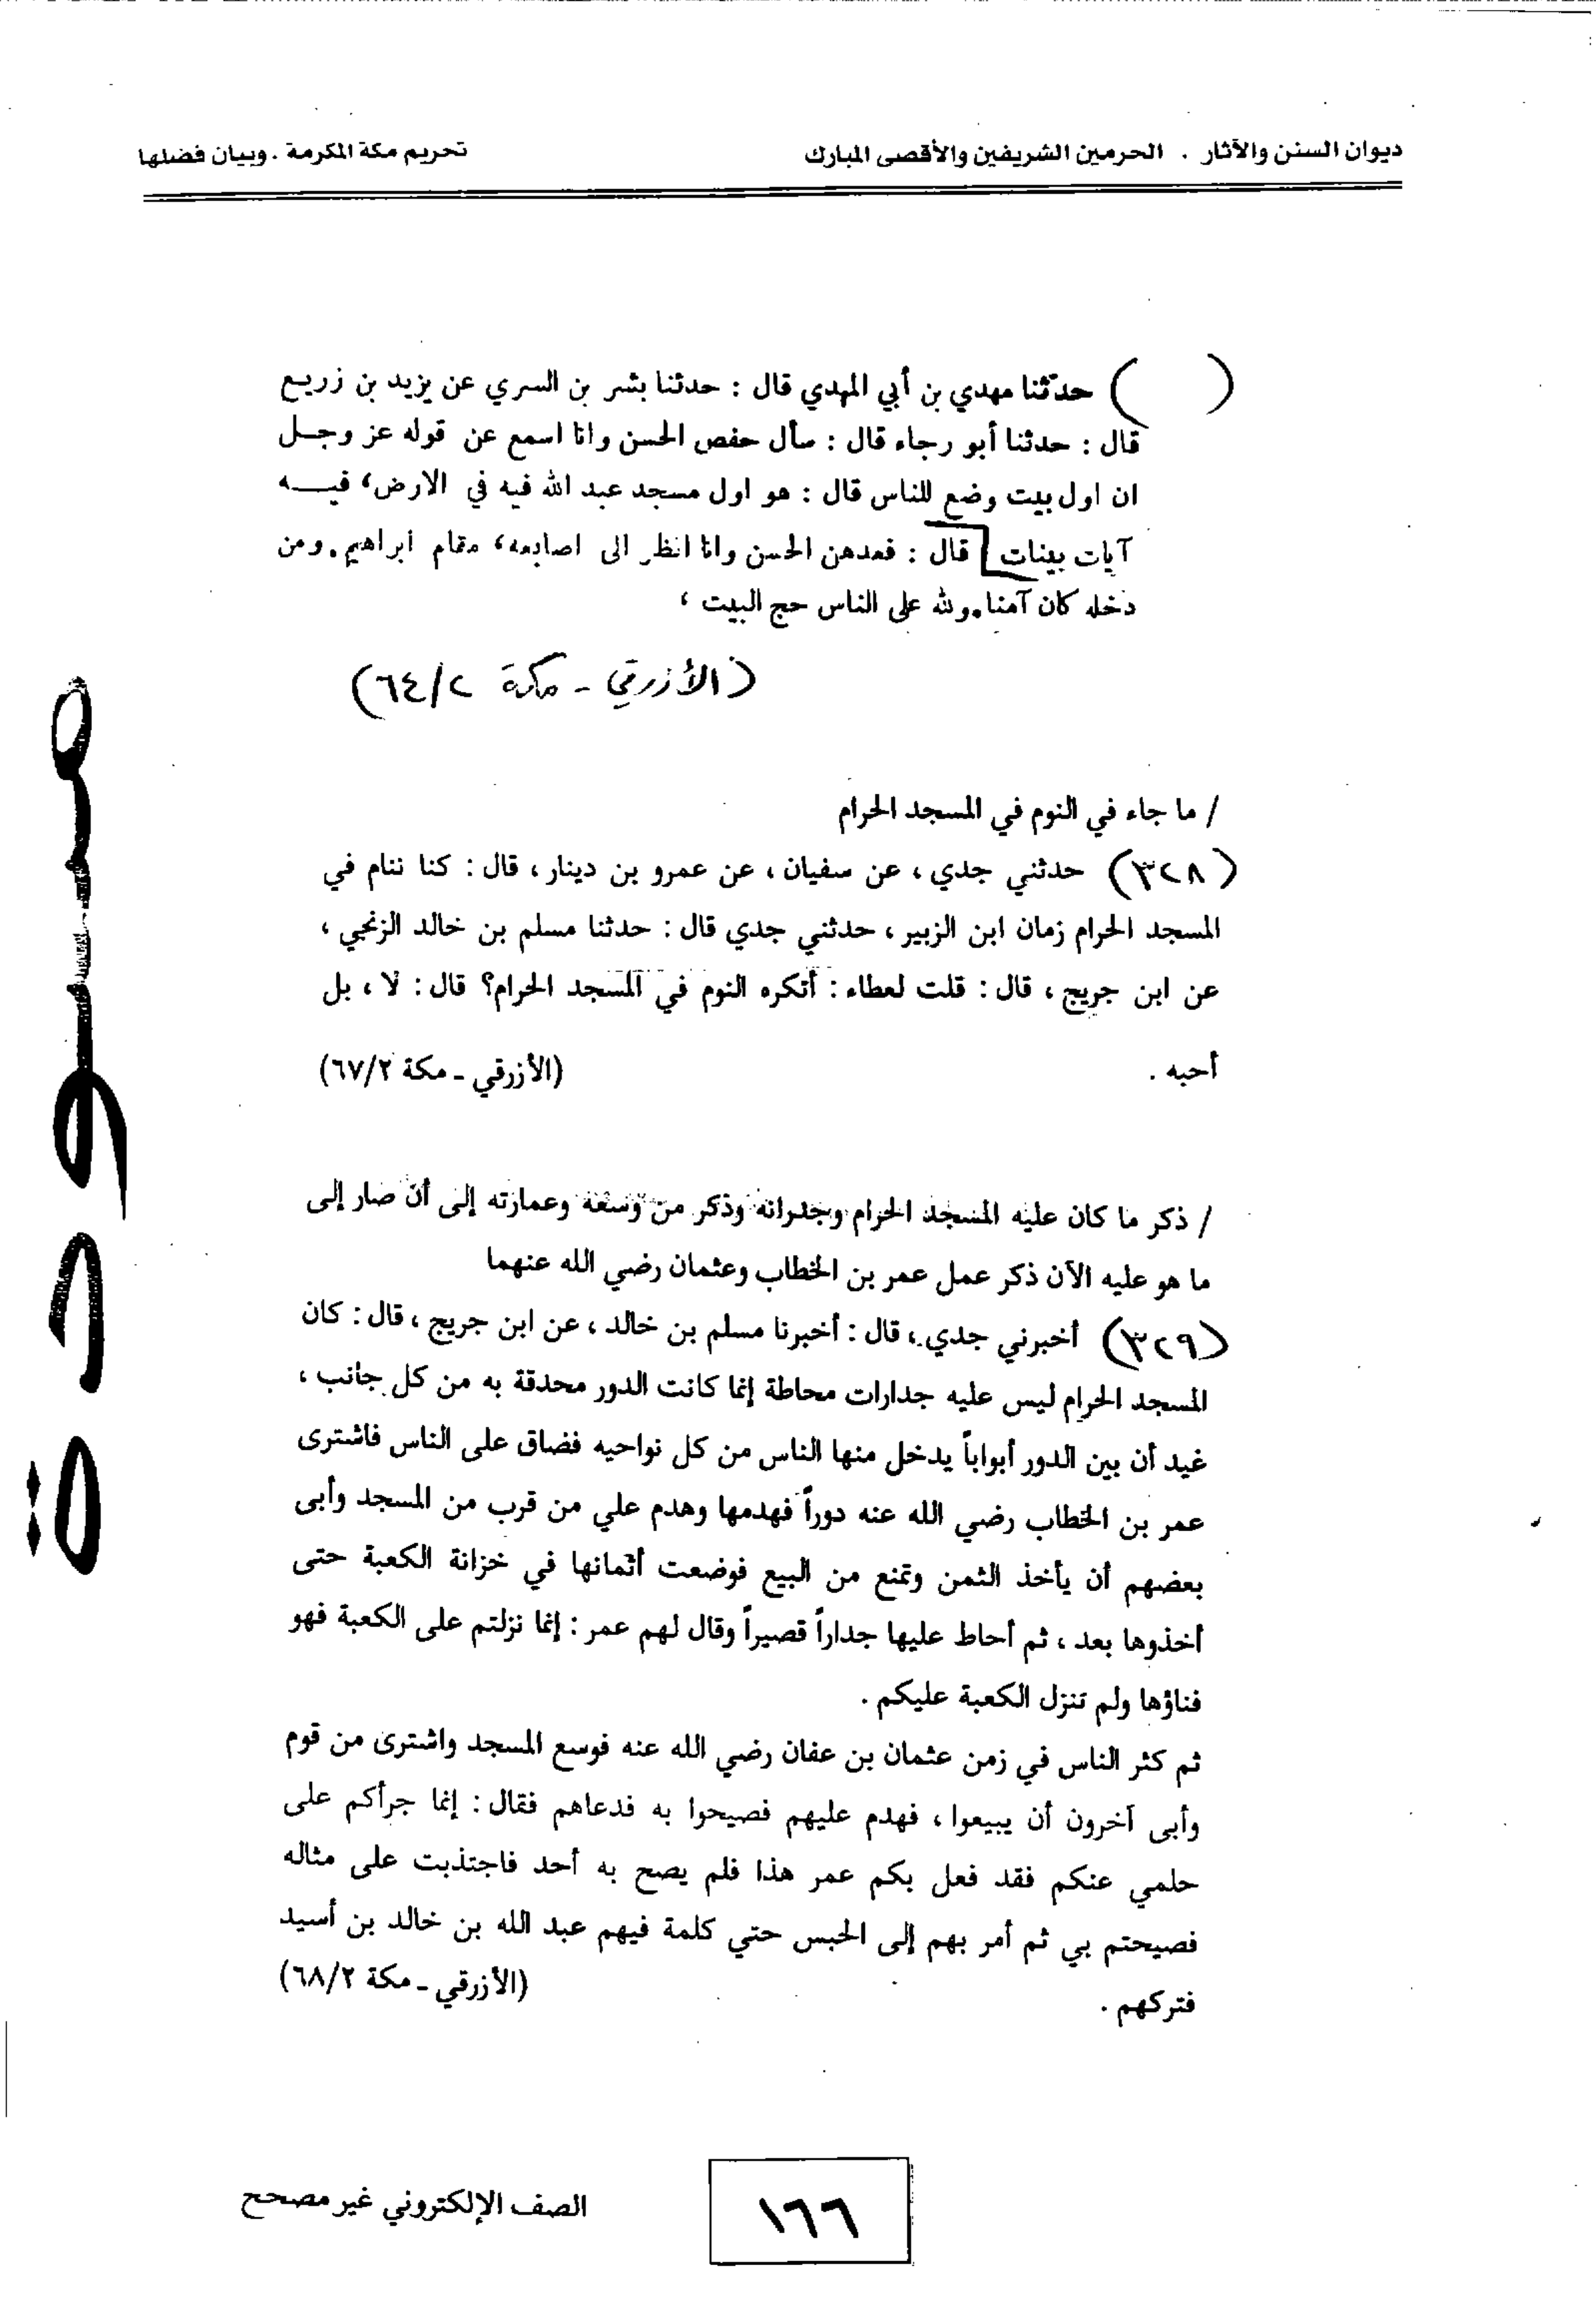 ديوان السنن والآثار . الحرمين الشريفين والأقصى المبارك
تحريم مكة المكرمة . وبيان فضلها
( ) حدثنا مهدي بن أبي المهدي قال : حدثنا بشر بن السري عن يزيد بن زريع
قال : حدثنا أبو رجاء قال : سأل حفص الحسن وانا اسمع عن قوله عز وجل
ان اول بيت وضع للناس قال : هو اول مسجد عبد الله فيه في الارض، فيه
آيات بينات قال : فعدهن الحسن وانا انظر الى اصابعه، مقام ابراهيم. ومن
دخله كان آمنا. ولله على الناس حج البيت ،
(الأزرقي - مكة ٦٤/٢)
/ ما جاء في النوم في المسجد الحرام
(٣٢٨) حدثني جدي ، عن سفيان ، عن عمرو بن دينار ، قال : كنا ننام في
المسجد الحرام زمان ابن الزبير ، حدثني جدي قال : حدثنا مسلم بن خالد الزنجي ،
عن ابن جريج ، قال : قلت لعطاء : أتكره النوم في المسجد الحرام؟ قال : لا ، بل
أحبه . (الأزرقي - مكة ٦٧/٢)
/ ذكر ما كان عليه المسجد الحرام وجدرانه وذكر من وسعه وعمارته إلى أن صار إلى
ما هو عليه الآن ذكر عمل عمر بن الخطاب وعثمان رضي الله عنهما
(٣٢٩) أخبرني جدي ، قال : أخبرنا مسلم بن خالد ، عن ابن جريج ، قال : كان
المسجد الحرام ليس عليه جدارات محاطة إنما كانت الدور محدقة به من كل جانب ،
غيد أن بين الدور أبواباً يدخل منها الناس من كل نواحيه فضاق على الناس فاشترى
عمر بن الخطاب رضي الله عنه دوراً فهدمها وهدم علي من قرب من المسجد وأبى
بعضهم أن يأخذ الثمن وتمنع من البيع فوضعت أثمانها في خزانة الكعبة حتى
أخذوها بعد ، ثم أحاط عليها جداراً قصيراً وقال لهم عمر : إنما نزلتم على الكعبة فهو
فناؤها ولم تنزل الكعبة عليكم .
ثم كثر الناس في زمن عثمان بن عفان رضي الله عنه فوسع المسجد واشترى من قوم
وأبى آخرون أن يبيعوا ، فهدم عليهم فصيحوا به فدعاهم فقال : إنما جرأكم على
حلمي عنكم فقد فعل بكم عمر هذا فلم يصح به أحد فاجتذبت على مثاله
فصيحتم بي ثم أمر بهم إلى الحبس حتي كلمة فيهم عبد الله بن خالد بن أسيد
فتركهم . (الأزرقي - مكة ٦٨/٢)
مسودة
١٦٦
الصف الإلكتروني غير مصحح